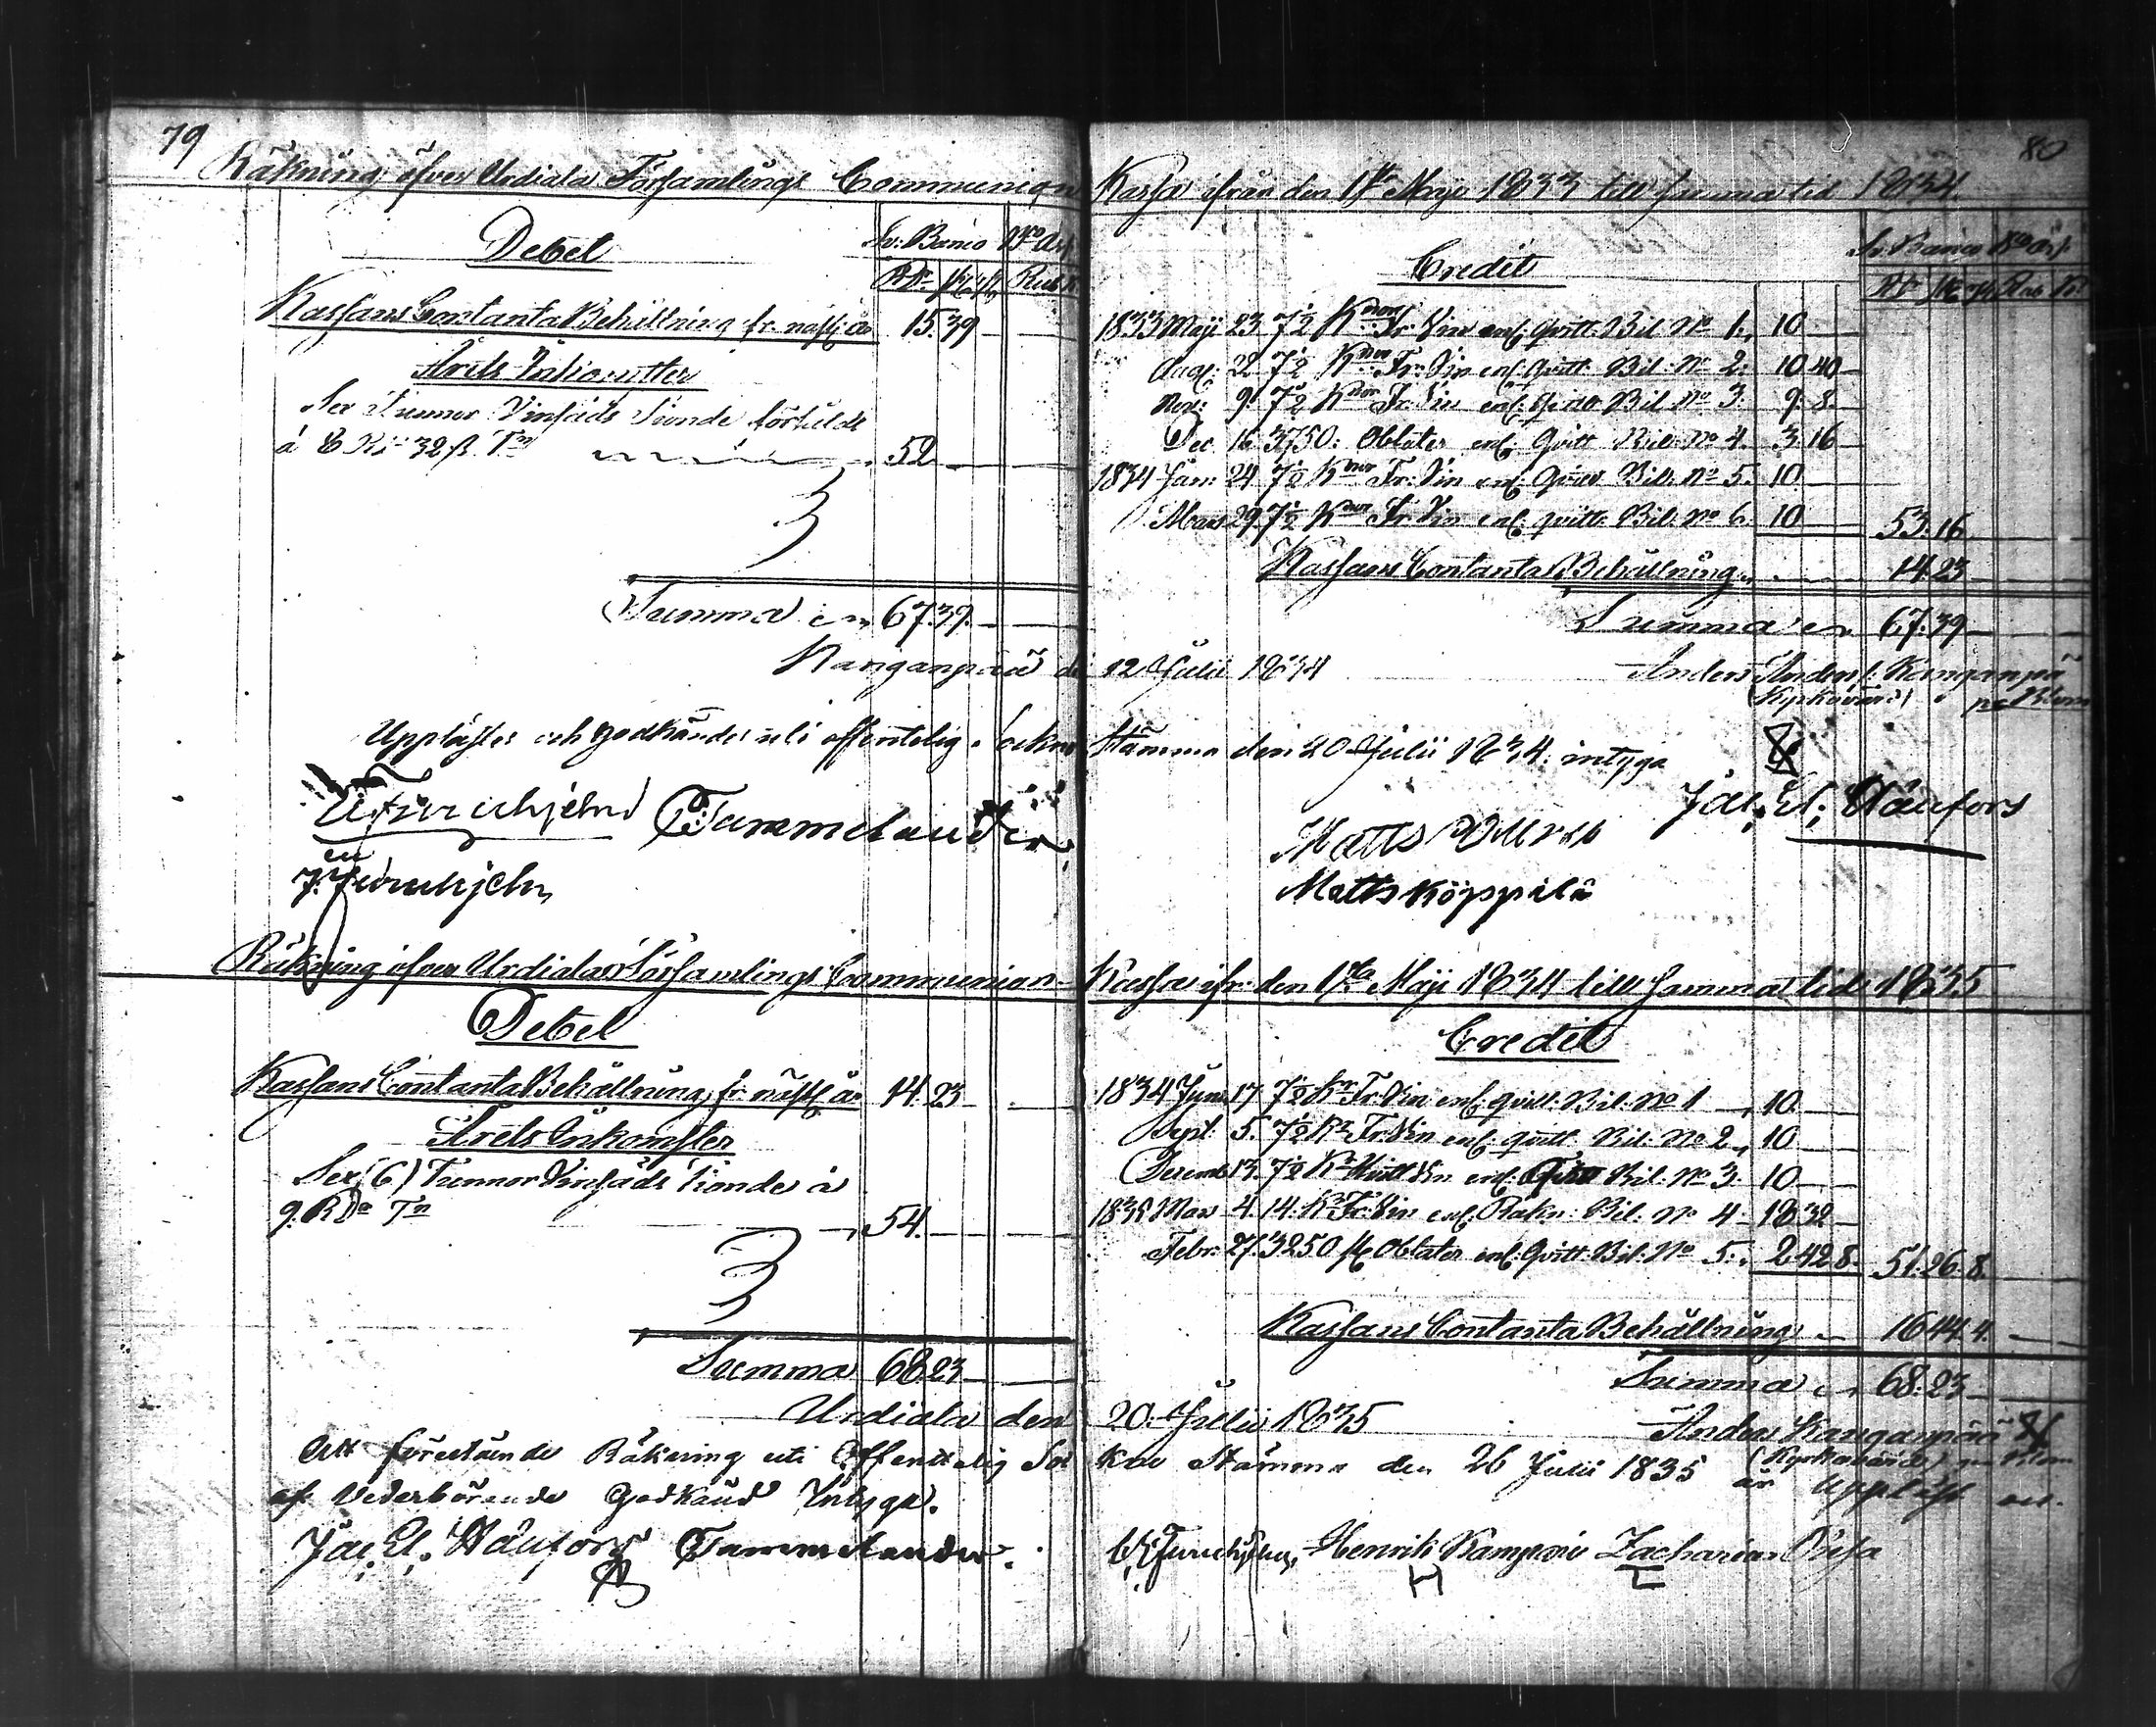 79
Räkning öfver Urdiala Församlings Communion
Debet
Sv: Banco
Kassans Contanta Behållning fr. nästl: år 15. 39
Årets Inkomster
Sex Tunnor Vinsäds Tionde försålde
à 8 Rd 32 ß Tn 52
Summa 67. 39.
Kanganpää d:
Uppläster och godkänder uti offentelig Sockne
Tammelander
J. Furuhjelm
Räkning öfver Urdiala Församlings Communion
Debet
Kassans Contanta Behållning fr nästl år 14. 23
Årets Inkomster
Sex (6) Tunnor Vinsäds Tionde à
9. RD Tn 54.
Summa 68 23
Urdiala den
Att förestående Räkning uti Offentelig Soc
af Vederbörande Godkänd Intygar.
Jac. El. Tammelander.
80
Kassa ifrån den 1 Maji 1833 till samma tid 1834
Credit
Sv: Banco
1833 Maji 23 7½ Knor Fr: Vin enl. qvitt. Bil: No 1. 10
Aug: 22 7½ Knor Fr: Vin enl. qvitt. Bil: No 2. 10 40
Nov: 9. 7½ Knor Fr: Vin enl. Bil: No 3. 9. 8.
Dec 16 3750: Oblater enl: Qvitt Bil: No 4. 3. 16
1834 Jan: 24 7½ Knor Fr: Vin enl: Bil: No 5. 10.
Mars 29 7½ Knor Fr: Vin enl. qvitt. Bil: No 6. 10 53. 16
Kassans Contanta Behållning 14 23
Summa 67. 39
12 Julii 1834 Anders Anders: Kanganpää
Stämma den 20 Julii 1834. intyga
Jac. El.
Matts
Matts Köppilä
Kassa ifr: den 1sta Maji 1834 till samma tid 1835
Credit
1834 Juni 17 7½ Kr Fr: Vin enl. qvitt. Bil: No 1 10
Sept 5. 7½ Kr Fr: Vin enl. qvitt. Bil: No 2 10
Decemb 13. 7½ Kr Vin enl. Bil: No 3. 10
1835 Mars 4. 14. Kr Fr: Vin enl. Räkn: Bil: No 4 18 32
Febr: 27. 3250 st Oblater enl. Qvitt. Bil: No 5. 2. 42 8. 51. 26. 8.
Kassans Contanta Behållning 16 44 4.
Summa 68. 23
20. Julii 1835 Anders Kanganpää
kne Stämma den 26 Julii 1835 är Uppläst
Henrik Zacharias